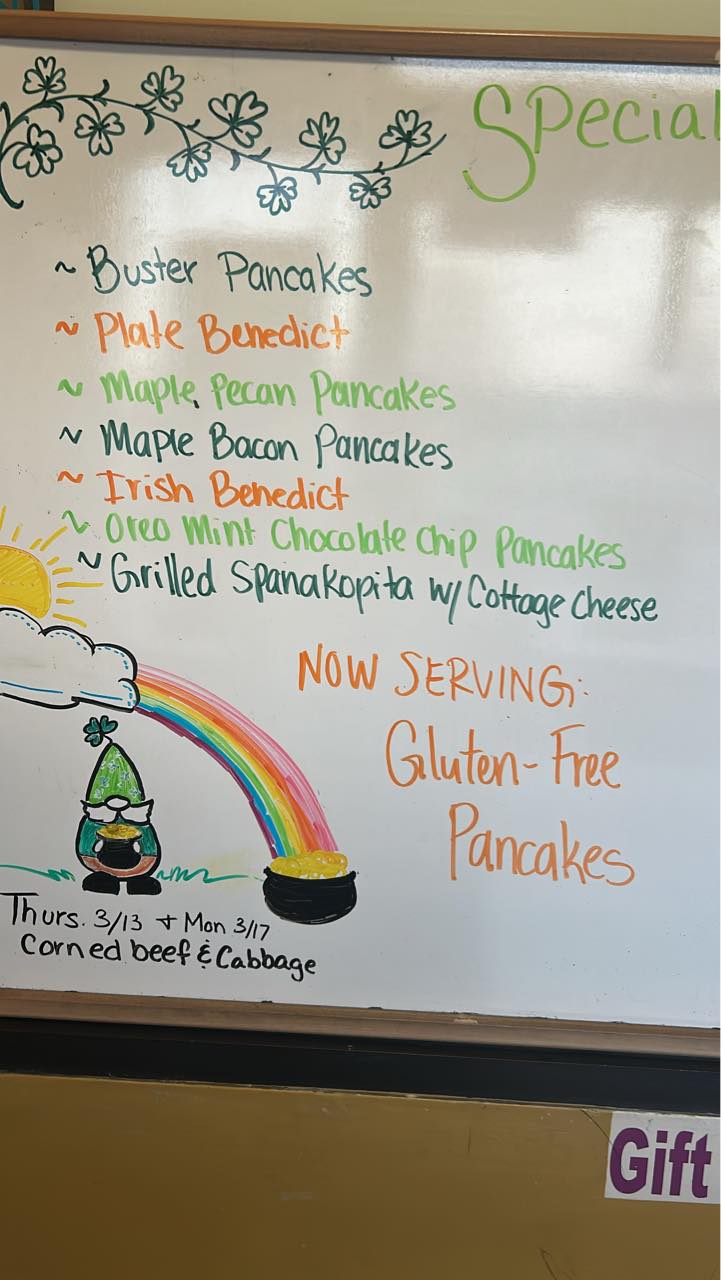 Special
~ Buster Pancakes
~ Plate Benedict
~ Maple Pecan Pancakes
~ Maple Bacon Pancakes
~ Irish Benedict
~ Oreo Mint Chocolate Chip Pancakes
~ Grilled Spanakopita w/ Cottage Cheese
NOW SERVING:
Gluten-Free
Pancakes
Thurs. 3/13 + Mon 3/17
Corned beef & Cabbage
Gift